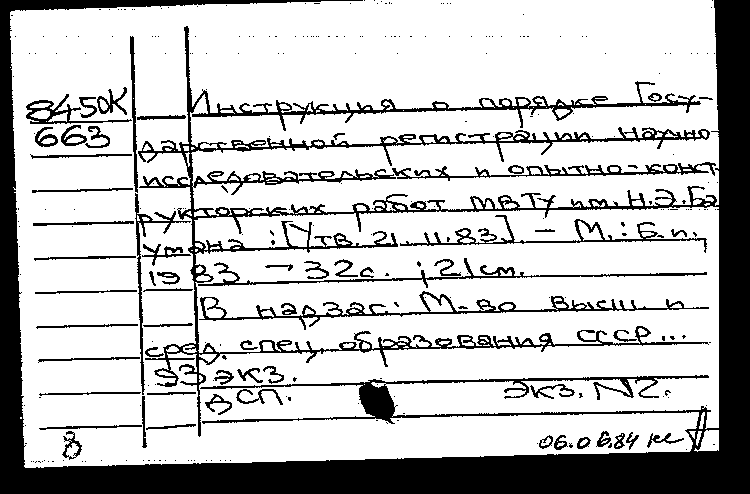 84-50К Инструкция о порядке Госу-
663 дарственной регистрации научно
исследовательских и опытно-конст
рукторских работ МВТУ им. Н.Э.Ба
умана : [Утв. 21.11.83.] – М. : Б.и.,
1983. – 32с. ; 21см.
В надзаг: М-во высш. и
сред. спец. образования СССР...
93 экз.
ДСП. Экз. N2.
8 06.06.84